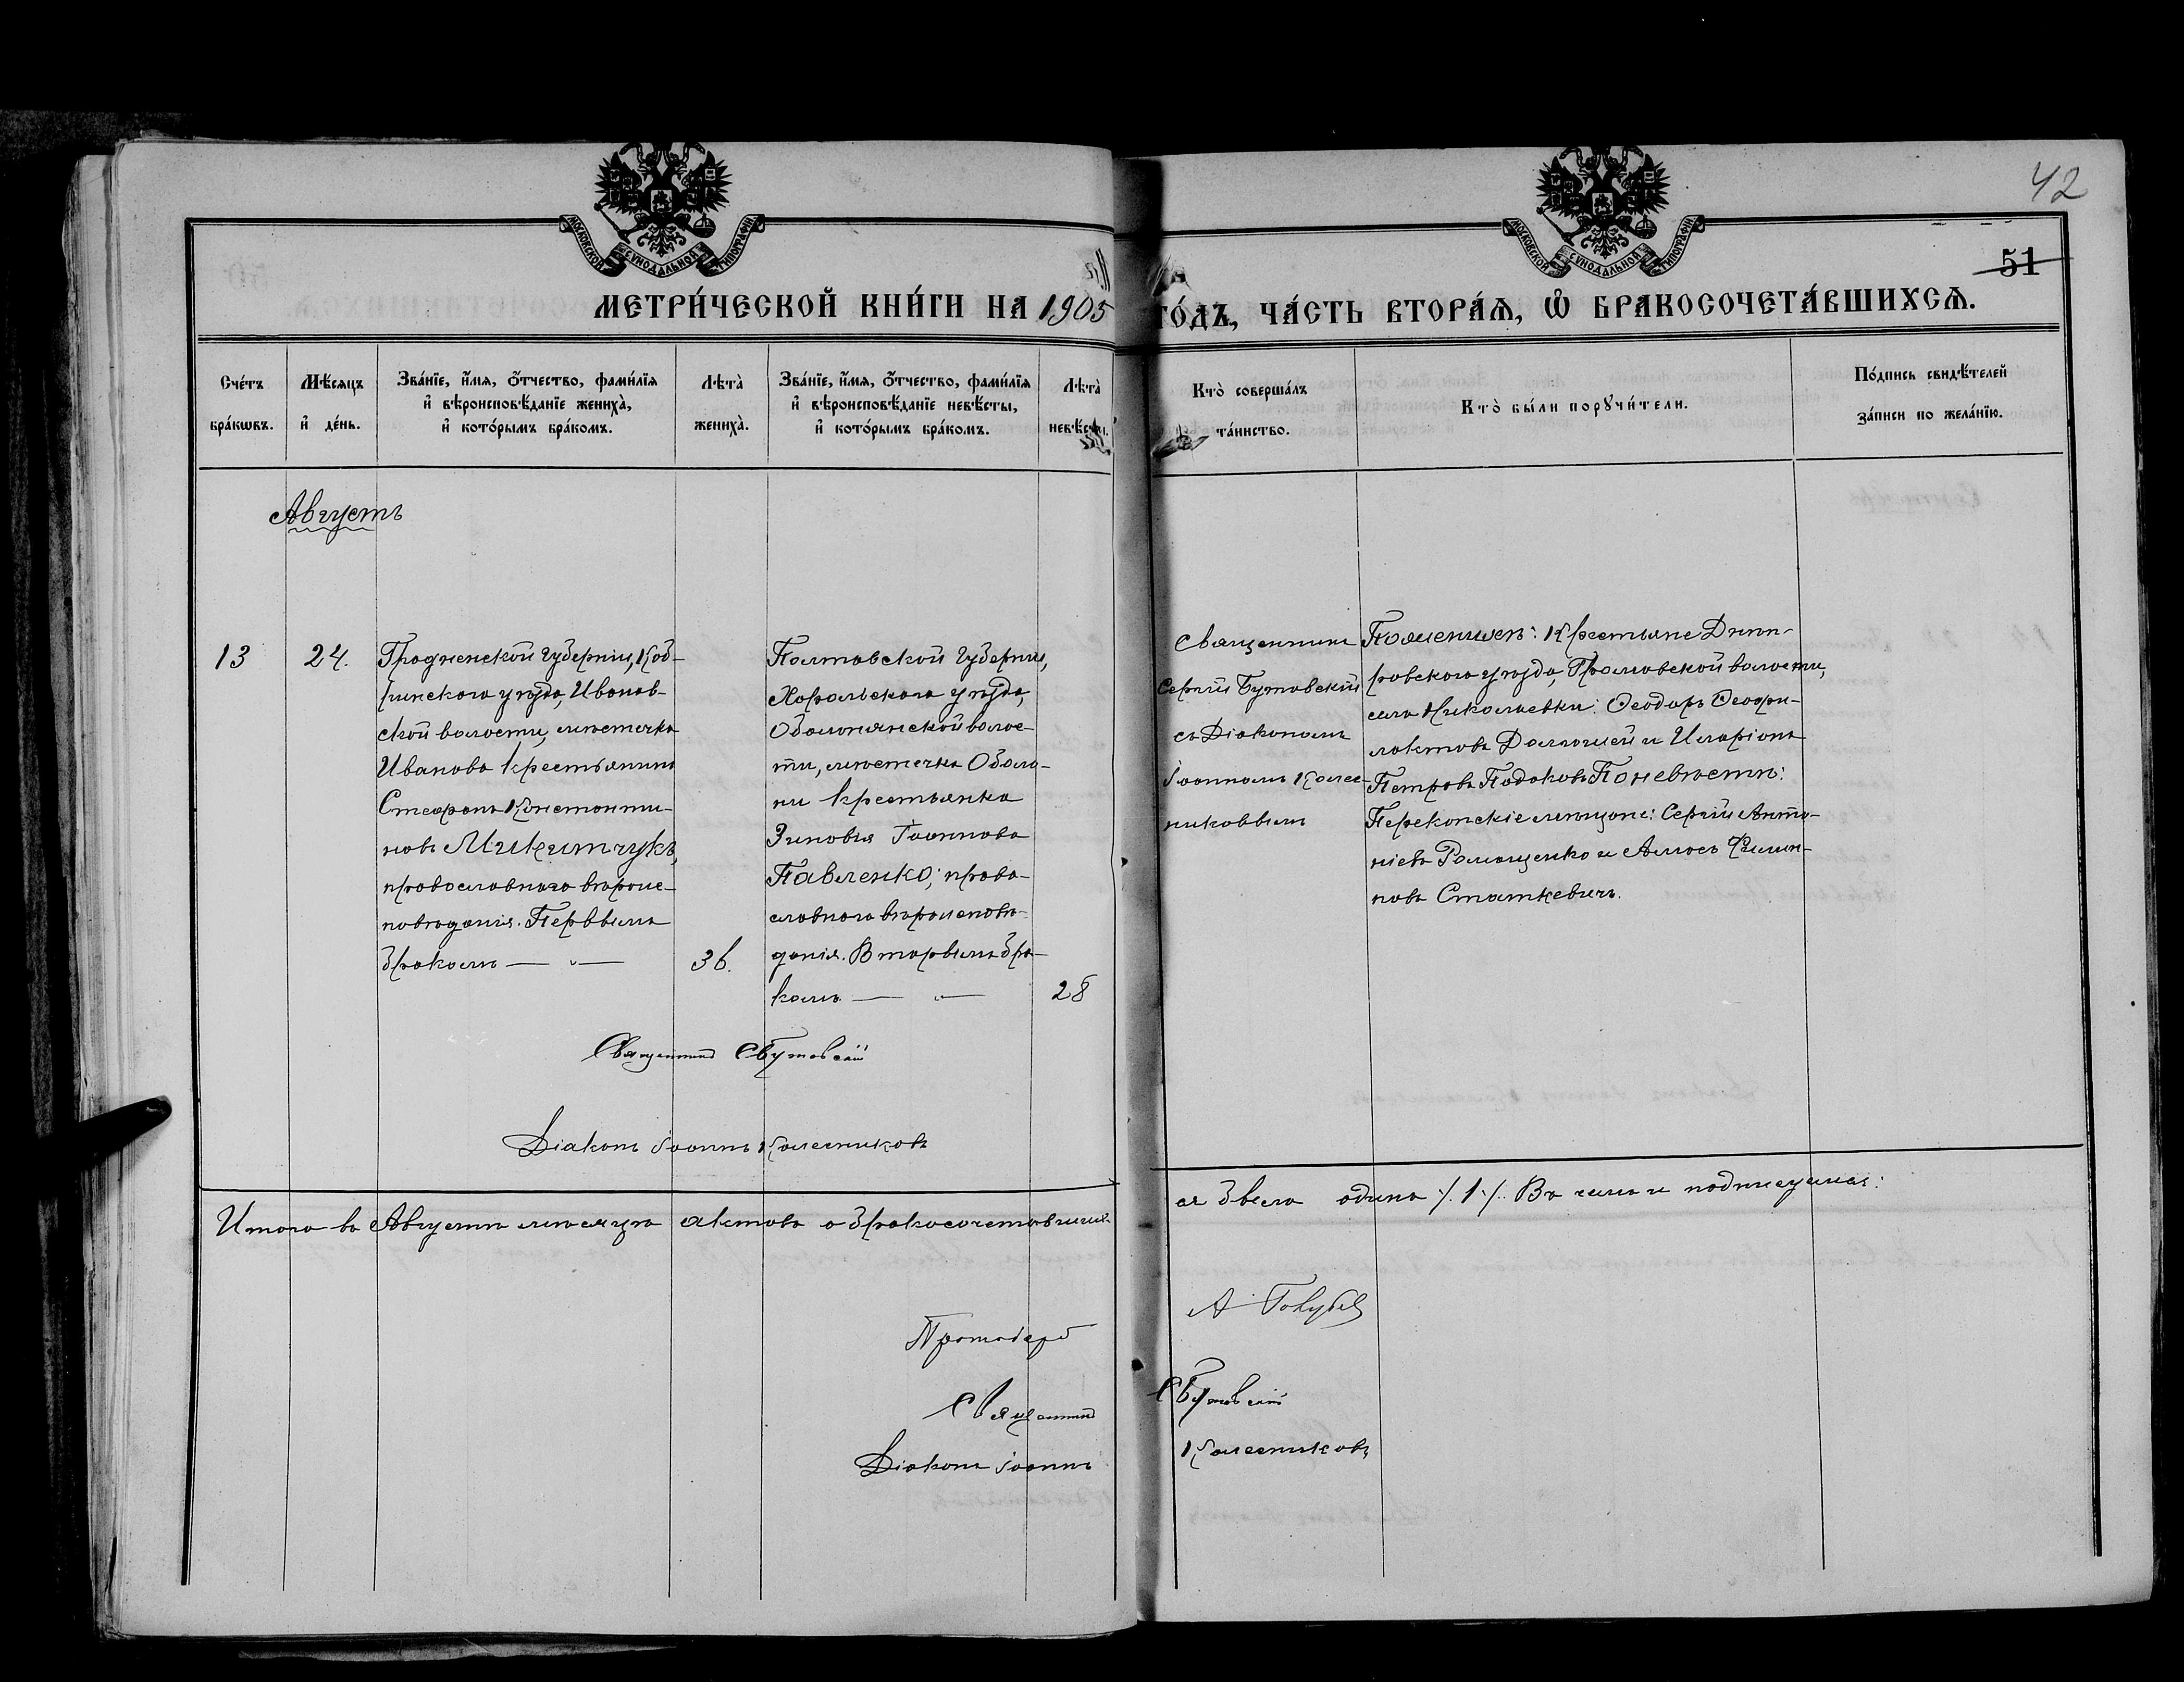 42
МОСКОВСКОЙ СѴНОДАЛЬНОЙ ТИПОГРАФІИ
МОСКОВСКОЙ СѴНОДАЛЬНОЙ ТИПОГРАФІИ
51
МЕТРИ́ЧЕСКОЙ КНИ́ГИ НА 1905 ГО́ДЪ, ЧА́СТЬ ВТОРА́Ѧ, Ѽ БРАКОСОЧЕТА́ВШИХСѦ.
Сче́тъ
бра́кѡвъ.
Мѣ́сяцъ
и҆ де́нь.
Зва́нїе, и҆́мя, ѻ҆́тчество, фами́лїя
и҆ вѣроисповѣ́данїе жениха̀,
и҆ кото́рымъ бра́комъ.
Лѣта̀
жениха̀.
Зва́нїе, и҆́мя, ѻ҆́тчество, фами́лїя
и҆ вѣроисповѣ́данїе невѣ́сты,
и҆ кото́рымъ бра́комъ.
Лѣта̀
невѣ́сты.
Кто̀ соверша́лъ
та́инство.
Кто̀ бы́ли порꙋчи́тели.
По́дпись свидѣ́телей
за́писи по жела́нїю.
Августъ
13
24.
Гродненской губерніи, Коб-
ринскаго уѣзда, Иванов-
ской волости, мѣстечка
Иванова крестьянинъ
Стефанъ Константи-
новъ Микитчукъ,
православнаго вѣроис-
повѣданія. Первымъ
бракомъ — " —
36.
Полтавской губерніи,
Хорольскаго уѣзда,
Оболонянской волос-
ти, мѣстечка Оболо-
ни крестьянка
Зиновія Іоаннова
Павленко; право-
славнаго вѣроисповѣ-
данія. Вторымъ бра-
комъ — " —
28
Священникъ
Сергій Бутовскій
съ Діакономъ
Іоанномъ Колес-
никовымъ
По женихѣ: Крестьяне Днѣп-
ровскаго уѣзда, Громовской волости,
села Николаевки: Ѳеодоръ Ѳеофи-
лактовъ Доллошей и Иларіонъ
Петровъ Подаковъ По невѣстѣ:
Перекопскіе мѣщане: Сергій Анто-
ніевъ Ромащенко и Амосъ Филип-
повъ Статкевичъ.
Священникъ С Бутовскій
Діаконъ Іоаннъ Колесниковъ
Итого въ Августѣ мѣсяцѣ актовъ о бракосочетавших-
ся было одинъ /. 1 /. Въ чемъ и подписуемся:
Протоіерей А Голубев
Священникъ С Бутовскій
Діаконъ Іоаннъ Колесниковъ